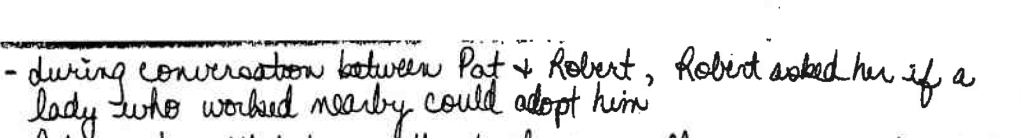 - during conversation between Pat & Robert, Robert asked her if a
lady who worked nearby could adopt him